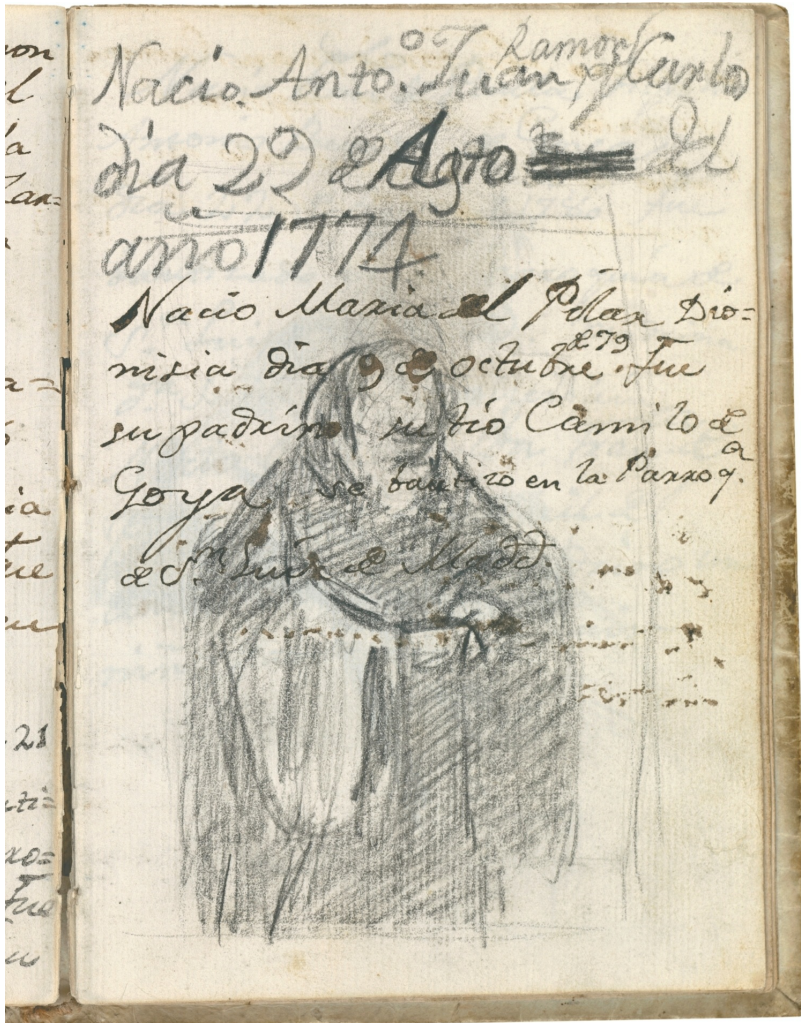 on
l
a
Zar=
Nacio Anto.º Juan, Ramon y Carlos
dia 29 de Agto del
año 1774
Nacio Maria del Pilar Dio=
nisia dia 9 de octubre de 79. fue
su padrino su tio Camilo de
Goya se bautizo en la Parroq.a
de Sn. Luis de Madd.
a=
ia
fue
su
21
uti=
rro=
fue
su